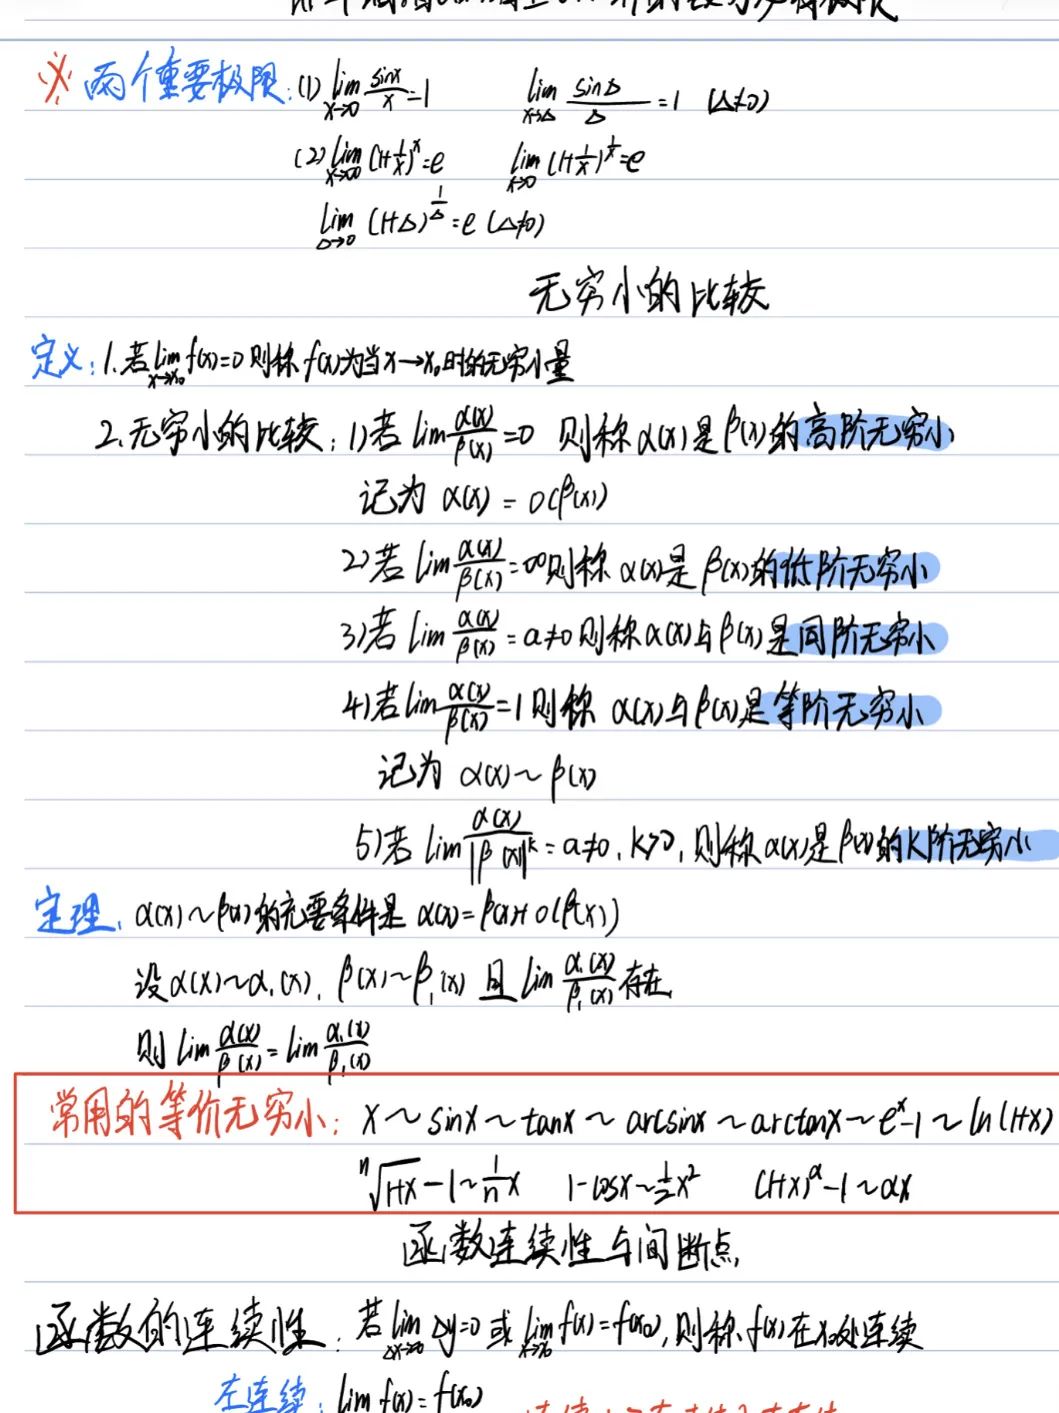 ※ 两个重要极限:(1) lim x→0 sinx/x =1  lim x→Δ sinΔ/Δ =1 (Δ≠0)
(2) lim x→∞ (1+1/x)^x=e  lim x→0 (1+1/x)^(1/x)=e
lim Δ→0 (1+Δ)^(1/Δ)=e (Δ≠0)
无穷小的比较
定义:1.若 lim x→x₀ f(x)=0 则称 f(x)为当x→x₀时的无穷小量
2.无穷小的比较:1)若 lim α(x)/β(x) =0 则称 α(x)是β(x)的高阶无穷小
记为 α(x) = o(β(x))
2)若 lim α(x)/β(x) =∞则称 α(x)是 β(x)的低阶无穷小
3)若 lim α(x)/β(x) = a≠0 则称α(x)与β(x)是同阶无穷小
4)若 lim α(x)/β(x) =1 则称 α(x)与β(x)是等阶无穷小
记为 α(x)~β(x)
5)若 lim α(x)/|β(x)|^k = a≠0,k>0,则称 α(x)是β(x)的k阶无穷小
定理, α(x)~β(x)的充要条件是 α(x)=β(x)+o(β(x))
设α(x)~α₁(x),β(x)~β₁(x) 且 lim α₁(x)/β₁(x) 存在,
则 lim α(x)/β(x) = lim α₁(x)/β₁(x)
常用的等价无穷小: x~sinx~tanx~arcsinx~arctanx~e^x-1~ln(1+x)
ⁿ√1+x -1~1/n x  1-cosx~1/2 x²  (1+x)^α-1~αx
函数连续性与间断点,
函数的连续性:若 lim Δx→0 Δy=0 或 lim x→x₀ f(x)=f(x₀),则称f(x)在x₀处连续
左连续: lim f(x)=f(x₀)